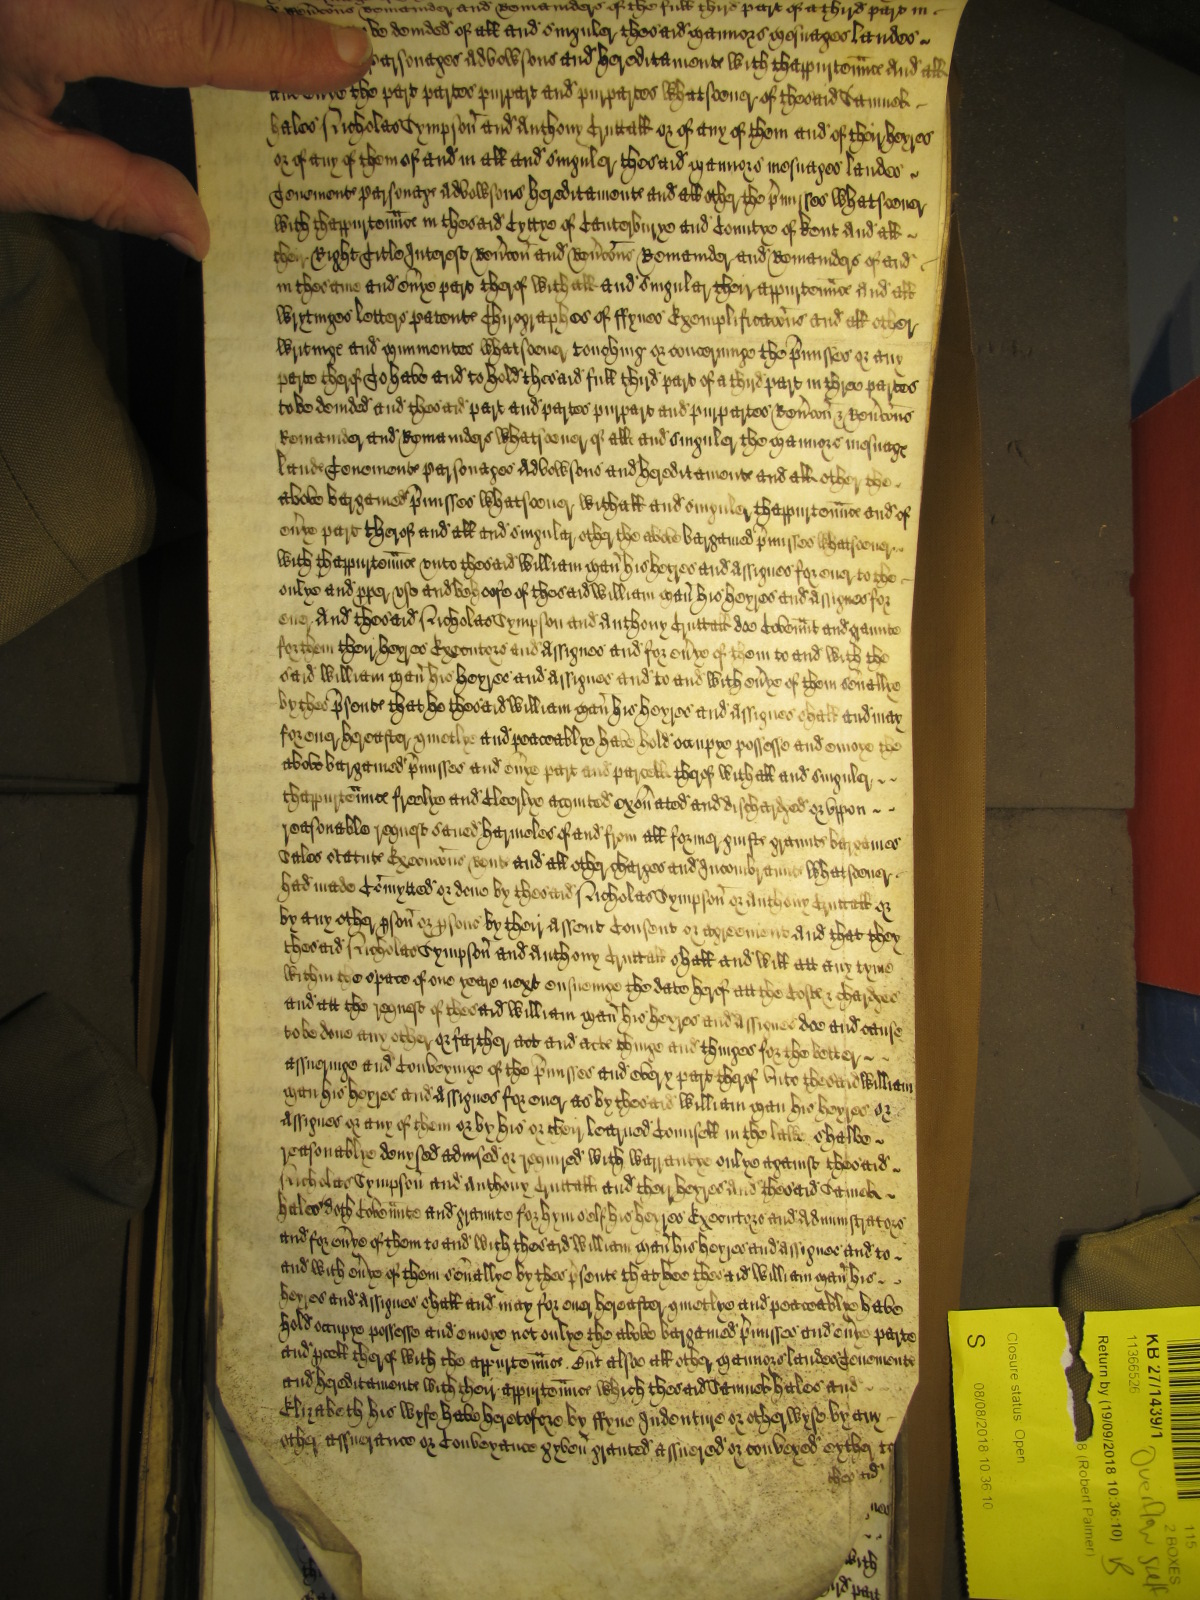 Remainder and Remainders of the full third part of a third part in
be devided of all and singuler thesaid mannors mesuages landes
parsonages Advowsons and hereditamente with thappurtenñce And all
and evrye the part partes purpart and purpartes Whatsoever of thesaid Samuel
hales Nicholas Sympson and Anthony Cruttall or of any of them and of their heyres
or of any of them of and in all and singuler thesaid mannors mesuages landes
Tenemente parsonage Advowsons hereditamente and all other the p̃misses Whatsoever
with thappurtenñce in thesaid Cyttye of Canterburye and Countye of Kent And all
their Right Title Interest Reṽcon and Reṽcons Remainder and Remainders of and
in thesame and eṽye part therof with all and singular their appurtenñce And all
Wrytinges letters patente Chirographes of ffynes Exemplificacõns and all other
Writinge and munimentes Whatsoever touching or concerninge the p̃misses or any
parte therof To have and to hold thesaid full third part of a third part in three partes
to be devided and thesaid part and partes purpart and purpartes Reṽcon & Reṽcons
Remainder and Remainders Whatsoever of all and singuler the mannors mesuage
lande Tenemente parsonages Advowsons and hereditamente and all other the
above bargained p̃misses Whatsoever with all and singuler thappurtenñce and of
eṽye part therof and all and singular other the above bargained p̃misses Whatsoever
with thappurtenñce vnto thesaid William man his heyres and Assignes for ever to the
onlye and p̱per vse and behoofe of thesaid William man his heyres and Assignes for
ever And thesaid Nicholas Sympson and Anthony Cruttall doe Coven̄nt and graunte
for them their heyres Executors and Assignes and for eṽye of them to and with the
said William man his heyres and Assignes and to and with eṽye of them seṽallye
by thes p̃sente that he thesaid William man his heyres and Assignes shall and may
for ever hereafter quietlye and peaceablye have hold occupye possesse and enioye the
above bargained p̃misses and eṽye part and parcell therof with all and singuler
thappurtenñce freelye and Cleerlye acquited exoñated and discharged or vppon
reasonable request saved harmeles of and from all former guifte graunte bargaines
Sales statute Execucõns Rente and all other charges and Incombrance Whatsoever
had made Com̃ytted or done by thesaid Nicholas Sympson or Anthony Cruttall or
by any other p̱son or p̱sons by their Assent Consent or agreement And that they
thesaid Nicholas Sympson and Anthony Cruttall shall and will att any tyme
within the space of one yeare next ensueinge the date herof att the Coste & chardges
and att the request of thesaid William man his heyres and Assignes doe and cause
to be done any other or farther act and acte thinge and thinges for the better
assueringe and Conveyinge of the p̃misses and every part therof vnto thesaid William
man his heyres and Assignes for ever as by thesaid William man his heyres or
Assignes or any of them or by his or their learned Counsell in the lawe shalbe
reasonablye devysed advised or required with warrantye onlye against thesaid
Nicholas Sympson and Anthony Cruttall and their heyres And thesaid Samuel
hales doth Coven̄nte and graunte for hymself his heyres Executors and Administrators
and for eṽye of them to and with thesaid William man his heyres and assignes and to
and with eṽye of them seṽallye by thes p̃sente that hee thesaid William man his
heyres and Assignes shall and may for ever hereafter quietlye and peaceablye have
hold occupye possesse and enioye not onlye the above bargained p̃misses and eṽye parte
and p̱cell therof with the appurtenñce. But alsoe all other mannors landes Tenemente
and hereditamente with their appurtenñce which thesaid Samuel hales and
Elizabeth his wyfe have heretofore by ffyne Indenture or otherwyse by any
other assuerance or Conveyance gyven granted assuered or conveyed eyther to
thesaid
with
third part
KB 27/1439/1
11366526
Return by (19/09/2018 10:36:10)
(Robert Palmer)
Closure status Open
08/08/2018 10:36:10
S
115
2 BOXES
Overflow